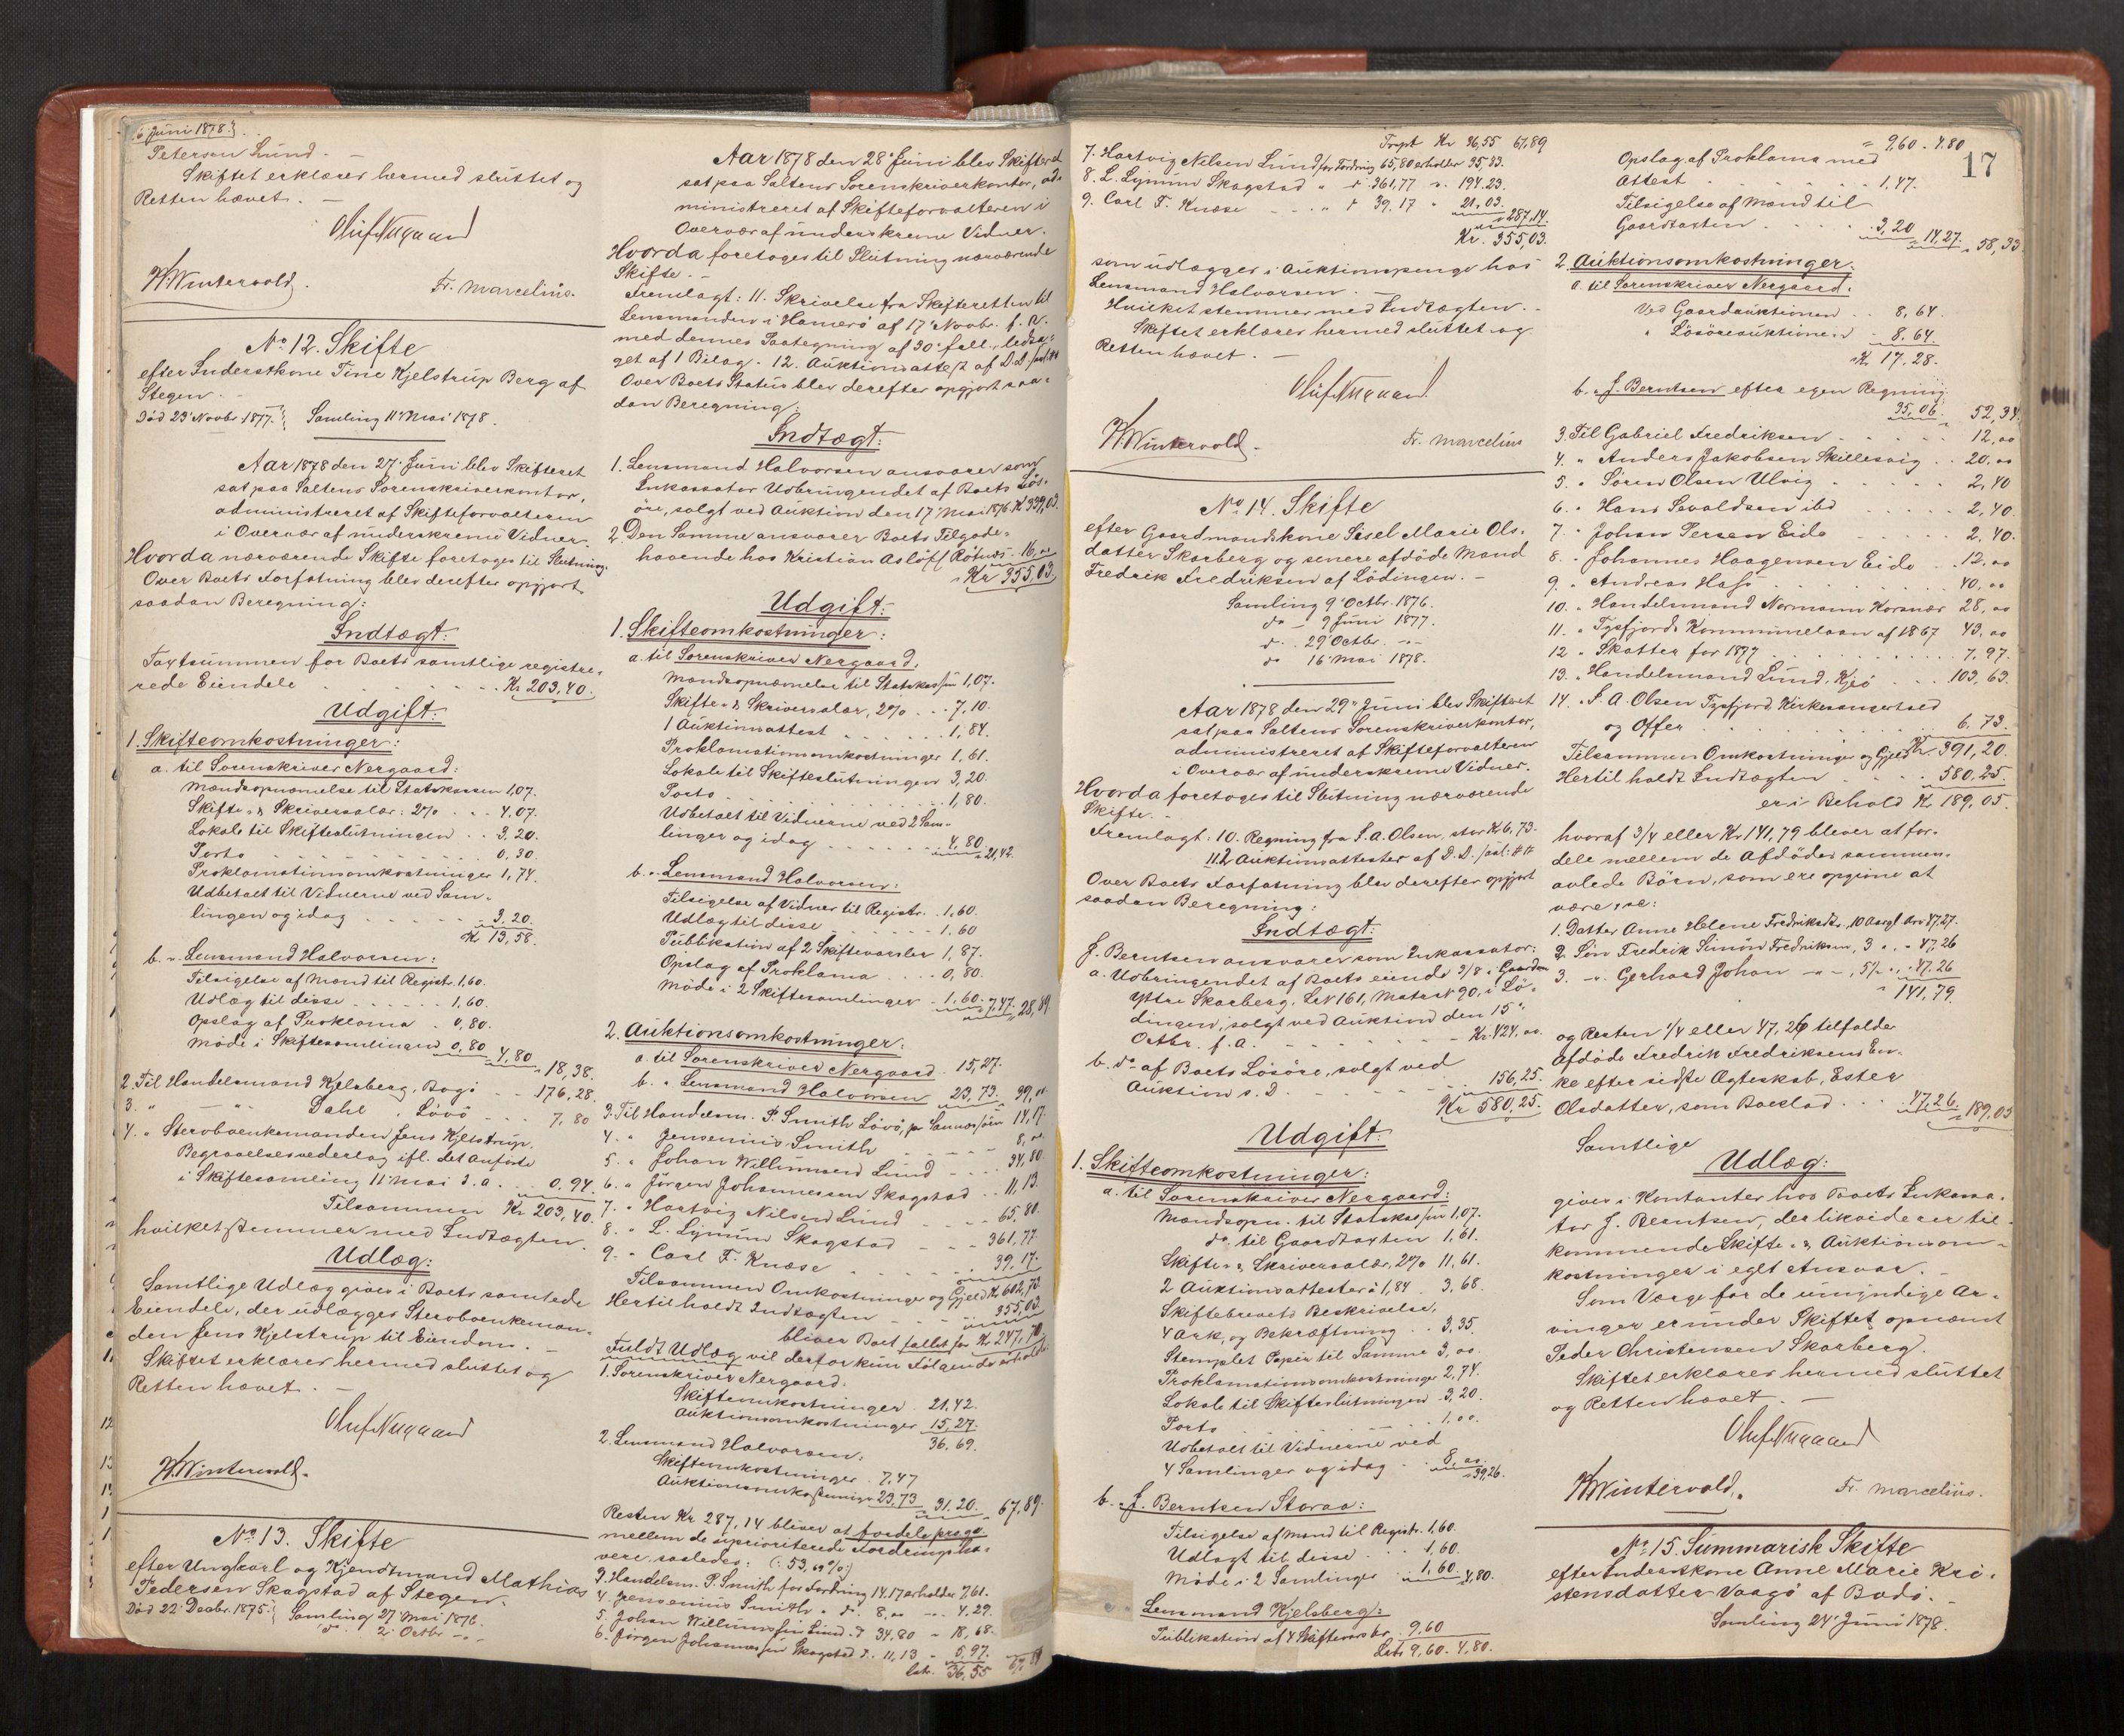 6 Juni 1878.
Petersen Lund. —
Skiftet erklæres hermed sluttet og
Retten hævet. —
Oluf Nergaard
H. Wintervold.
Fr. Marcelius.
No 12. Skifte
efter Inderstkone Tine Kjelstrup Berg af
Stegen. —
Død 23' Novbr. 1877. Samling 11' Mai 1878.
Aar 1878 den 27' Juni blev Skifteret
sat paa Saltens Sorenskriverkontor,
administreret af Skifteforvalteren
i Overvær af underskrevne Vidner.
Hvorda nærværende Skifte foretoges til Slutning.
Over Boets Forfatning blev derefter opgjort
saadan Beregning:
Indtægt:
Taxtsummen for Boets samtlige registre-
rede Eiendele . . . Kr 203,40.
Udgift:
1. Skifteomkostninger:
a. til Sorenskriver Nergaard:
Mandsopnævnelse til Statskassen 1,07.
Skifte- & Skriversalær: 2% . . 4,07.
Lokale til Skifteslutningen . . 3,20.
Porto . . . 0,30.
Proklamationsomkostninger 1,74.
Udbetalt til Vidnerne ved Sam-
lingen og idag . . . 3,20.
Kr 13,58.
b. " Lensmand Halvorsen:
Tilsigelse af Mænd til Registr. 1,60.
Udlæg til disse . . . 1,60.
Opslag af Proklama . 0,80.
Møde i Skiftesamlingen 0,80 4,80 18,38.
2. Til Handelsmand Kjelsberg, Bogø . . 176,28.
3. " — " — Dahl, Løvø . . . 7,80
4. " Stervboenkemanden Jens Kjelstrup.
Begravelsesvederlag ifl. det anførte
i Skiftesamling 11' Mai d. a. . . 0,94.
Tilsammen Kr 203,40.
hvilket stemmer med Indtægten.
Udlæg:
Samtlige Udlæg gives i Boets samlede
Eiendele, der udlægges Stervboenkeman-
den Jens Kjelstrup til Eiendom. —
Skiftet erklæres hermed sluttet og
Retten hævet. —
Oluf Nergaard
H. Wintervold.
No 13. Skifte
efter Ungkarl og Kjendtmand Mathias
Pedersen Skagstad af Stegen.
Død 22' Decbr. 1875. Samling 27' Mai 1876.
do 2' Octbr. — " —
Aar 1878 den 28' Juni blev Skifteret
sat paa Saltens Sorenskriverkontor, ad-
ministreret af Skifteforvalteren i
Overvær af underskrevne Vidner.
Hvorda foretoges til Slutning nærværende
Skifte. —
Fremlagt: 11. Skrivelse fra Skifteretten til
Lensmanden i Hamerø af 17' Novbr. f. A.
med dennes Paategning af 30' s. M., ledsa-
get af 1 Bilag. 12. Auktionsattest af D. D.
Over Boets Status blev derefter opgjort saa-
dan Beregning:
Indtægt:
1. Lensmand Halvorsen ansvarer som
Inkassator Udbringendet af Boets Løs-
øre, solgt ved Auktion den 17' Mai 1876 Kr 339,03.
2. Den Samme ansvarer Boets Tilgode-
havende hos Kristian Asløff Røtnes . 16,00
Kr 355,03.
Udgift:
1. Skifteomkostninger:
a. til Sorenskriver Nergaard:
Mandsopnævnelse til Statskassen 1,07.
Skifte- & Skriversalær, 2% . . . 7,10.
1 Auktionsattest . . . 1,84.
Proklamationsomkostninger 1,61.
Lokale til Skifteslutningen 3,20.
Porto . . . 1,80.
Udbetalt til Vidnerne ved 2 Sam-
linger og idag . . . 4,80 21,42.
b. " Lensmand Halvorsen:
Tilsigelse af Vidner til Registr. . 1,60.
Udlæg til disse . . . 1,60
Publikation af 2 Skiftevarsler 1,87.
Opslag af Proklama . . . 0,80.
Møde i 2 Skiftesamlinger . 1,60. 7,47. 28,89.
2. Auktionsomkostninger:
a. til Sorenskriver Nergaard 15,27.
b. " Lensmand Halvorsen 23,73. 39,00.
3. Til Handelsm. P. Smith Løvø, pr 14,17.
4. " Jensenius Smith . . . 8,00.
5. " Johan Willumsen Lund . . . 34,80.
6. " Jørgen Johannessen Skagstad . . 11,13.
7. " Hartvig Nilsen Lund . . . 65,80.
8. " L. Lynum Skagstad . . . 361,77.
9. " Carl F. Knæse . . . 39,17.
Tilsammen Omkostninger og Gjeld Kr 602,73.
Hertil holdt Indtægten . . . 355,03.
bliver Boet fallit for Kr 247,70.
Fuldt Udlæg vil derfor kun Følgende erholde:
1. Sorenskriver Nergaard.
Skifteomkostninger . 21,42.
Auktionsomkostninger 15,27.
36,69.
2. Lensmand Halvorsen,
Skifteomkostninger . 7,47
Auktionsomkostninger 23,73 31.20. 67,89.
Resten Kr. 287,14 bliver at fordele pro rata
mellem de uprioriterede Fordringsha-
vere, saaledes: (: 53,69 % :)
3. Handelsm. P. Smith for Fordring 14.17 erholder 7,61.
4. Jensenius Smith " do 8,00 — 4,29.
5. Johan Willumsen Lund . do 34,80 " 18,68.
6. Jørgen Johannessen Skagstad do . 11,13 " 5,97.
Lat. 36,55 67,89
17
Trspt Kr 36,55 67,89
7. Hartvig Nilsen Lund for Fordring 65,80 erholder 35,33.
8. L. Lynum Skagstad " do 361,77 " 194.23.
9. Carl F. Knæse . . . " do 39.17 " 21,03.
287,14.
Kr. 355,03.
som udlægges i Auktionspenge hos
Lensmand Halvorsen. —
Hvilket stemmer med Indtægten. —
Skiftet erklæres hermed sluttet og
Retten hævet. —
Oluf Nergaard
H. Wintervold.
Fr. Marcelius
No 14. Skifte
efter Gaardmandskone Sisel Marie Ols-
datter Skarberg og senere afdøde Mand
Fredrik Fredriksen af Lødingen. —
Samling 9' Octbr. 1876.
do — 9 Juni 1877.
do . 29' Octbr. — " —
do 16' Mai 1878.
Aar 1878 den 29' Juni blev Skifteret
sat paa Saltens Sorenskriverkontor,
administreret af Skifteforvalteren
i Overvær af underskrevne Vidner.
Hvorda foretoges til Slutning nærværende
Skifte. —
Fremlagt: 10. Regning fra S. A. Olsen, stor Kr 6,73.
11. 2 Auktionsattester af D. D.
Over Boets Forfatning blev derefter opgjort
saadan Beregning:
Indtægt:
J. Berntsen ansvarer som Inkassator:
a. Udbringendet af Boets eiende 3/8 i Gaarden
Yttre Skarberg, LN 161, Matr N 90, i Lø-
dingen, solgt ved Auktion den 15'
Octbr. f. A. . . . Kr. 424,00.
b. do af Boets Løsøre, solgt ved
Auktion s. D. . . . 156,25.
Kr 580,25.
Udgift:
1. Skifteomkostninger:
a. til Sorenskriver Nergaard:
Mandsopn. til Statskassen 1,07.
do til Gaardtaxten 1,61.
Skifte- & Skriversalær, 2% 11,61.
2 Auktionsattester à 1,84 . 3,68.
Skiftebrevets Beskrivelse,
4 Ark, og Bekræftning . . 3,35.
Stemplet Papir til Samme 3,00.
Proklamationsomkostninger 2,74.
Lokale til Skifteslutningen . 3,20.
Porto . . . 1,00.
Udbetalt til Vidnerne ved
4 Samlinger og idag . . 8,00 39,26.
b. " J. Berntsen Storaa:
Tilsigelse af Mænd til Registr. 1,60.
Udlagt til disse . . . 1,60.
Møde i 2 Samlinger . 1,60. 4,80.
Lensmand Kjelsberg:
Publikation af 4 Skiftevarsler . 9,60
Latr 9,60. 4,80.
" 9,60 . 4.80
Opslag af Proklama med
Attest . . . 1,47.
Tilsigelse af Mænd til
Gaardtaxten . . . 3,20 14,27. 58,33
2. Auktionsomkostninger:
a. til Sorenskriver Nergaard:
Ved Gaardauktionen . . 8,64.
" Løsøreauktionen . 8.64.
Kr 17,28.
b. " J. Berntsen efter egen Regning
35,06. 52,34.
3. Til Gabriel Fredriksen . . . 12,00
4. " Anders Jakobsen Skillesvig . . 20.00
5. " Søren Olsen Ulvig . . . 2,40
6. " Hans Sevaldsen ibd . . . 2,40.
7. " Johan Persen Eide . . . 2.40.
8. " Johannes Haagensen Eide . . 12,00
9. " Andreas Hafs . . . 40,00
10. " Handelsmand Normann Korsnæs 28,00
11. " Tysfjords Kommunelaan af 1867 43,00
12. " Skatter for 1877 . . . 7.97.
13. " Handelsmand Lund, Kjeø . . . 103,63.
14. " S. A. Olsen Tysfjord Kirkesangertold
og Offer . . . 6,73.
Tilsammen Omkostninger og Gjeld Kr 391,20.
Hertil holdt Indtægten . . . 580,25.
er i Behold Kr 189,05.
hvoraf 3/4 eller Kr 141,79 bliver at for-
dele mellem de Afdødes sammen-
avlede Børn, som ere opgivne at
være, se:
1. Datter Anne Helene Fredriksdtr. 10 Aargl. Arv 47,27.
2. Søn Fredrik Simon Fredriksen, 3 " . " 47,26
3. — " — Gerhard Johan — " — , 5½ " . " 47.26
141,79.
og Resten 1/4 eller 47,26 tilfalder
Afdøde Fredrik Fredriksens En-
ke efter sidste Ægteskab, Ester
Olsdatter, som Boeslod . . . 47,26 189,05
Samtlige
Udlæg:
gives i Kontanter hos Boets Inkassa-
tor J. Berntsen, der likviderer til-
kommende Skifte- & Auktionsom-
kostninger i eget Ansvar. —
Som Værge for de umyndige Ar-
vinger er under Skiftet opnævnt
Peder Christensen Skarberg.
Skiftet erklæres hermed sluttet
og Retten hævet. —
Oluf Nergaard
H. Wintervold.
Fr. Marcelius.
No 15. Summarisk Skifte
efter Inderstkone Anne Marie Kri-
stensdatter Vaagø af Bodø. —
Samling 24' Juni 1878.